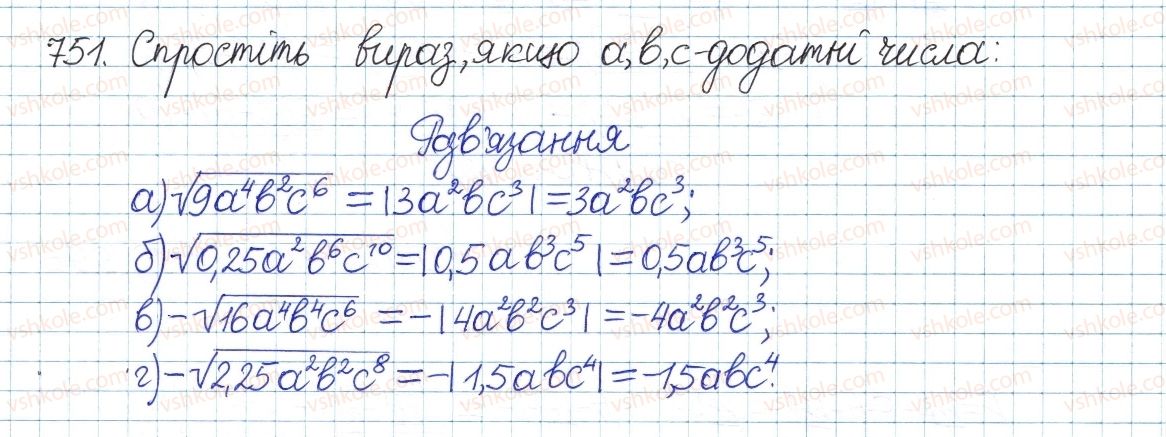 751. Спростіть вираз, якщо а, в, с - додатні числа:
Розв'язання
а) √9a⁴b²c⁶ = |3a²bc³| = 3a²bc³;
б) √0,25a²b⁶c¹⁰ = |0,5ab³c⁵| = 0,5ab³c⁵;
в) -√16a⁴b⁴c⁶ = -|4a²b²c³| = -4a²b²c³;
г) -√2,25a²b²c⁸ = -|1,5abc⁴| = -1,5abc⁴.